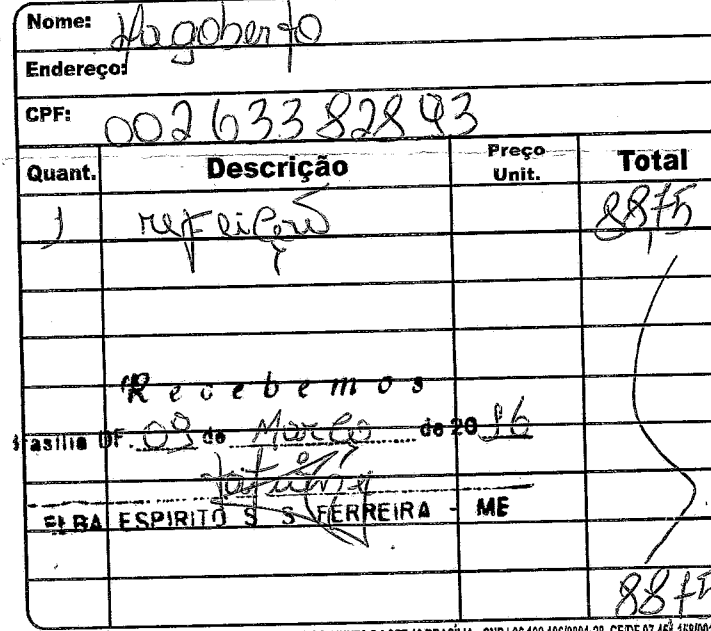 Nome: Dagoberto
Endereço:
CPF: 00263382893
Quant. Descrição Preço Unit. Total
1 refeições 88,75
Recebemos
Brasília DF. 09 de Março de 2016
ELBA ESPIRITO S S FERREIRA - ME
88,75